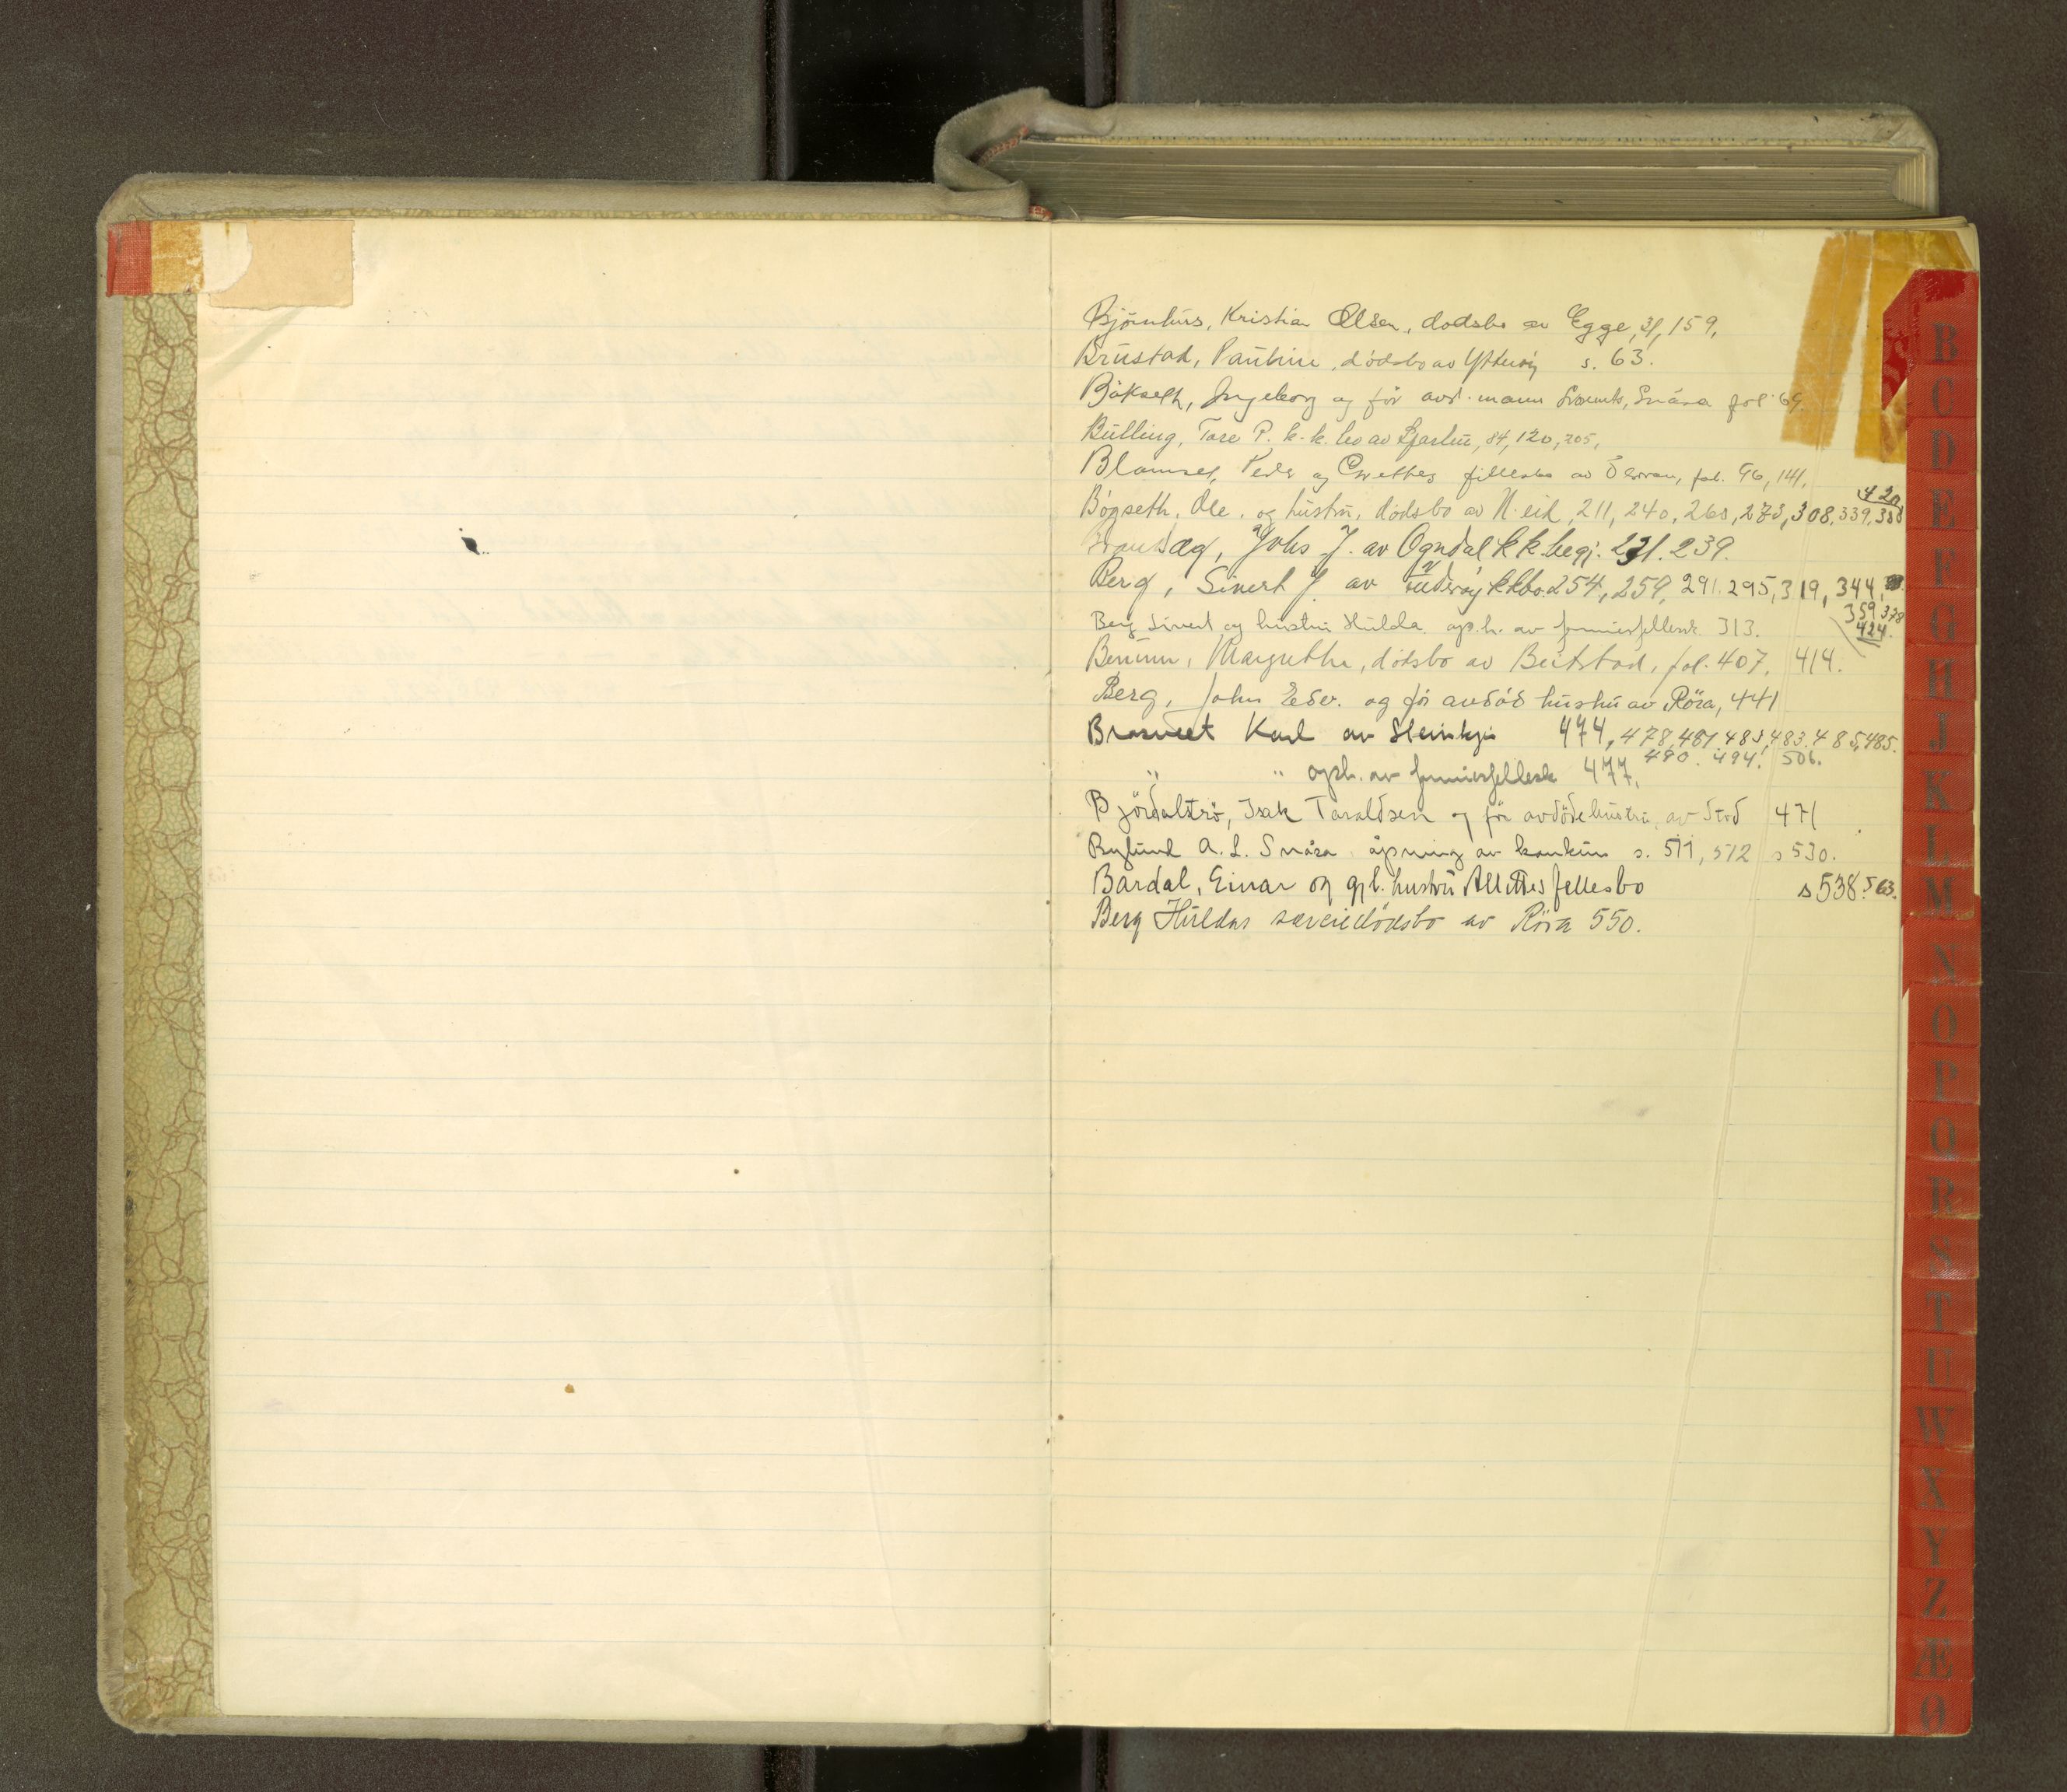 Björnhus, Kristian Olsen, dødsbo av Egge, 31, 159.
Brustad, Pauline, dödsbo av Ytteröy s. 63.
Båkseth, Ingeborg og för avd. mann Snåsa fol 69.
Bülling, Tore P. k.k. bo av 84, 120, 205,
Peder og fellesbo av fol. 96, 141,
420
Bögseth, Ole. og hustru, dödsbo av N. eid, 211, 240, 260, 273, 308, 339, 388
Johs J. av Ogndal k k begj. 231. 239.
Berg, Sivert J. av Inderöy kkbo. 254, 259, 291. 295, 319, 344,
359, 378
Berg Sivert og hustru Hulda oph. av formuesfellesk 313. 424.
Margrethe, dödsbo av Beitstad, fol. 407, 414.
Berg, John Edv. og för avdöd hustru av Röra, 441
Karl av Steinkjer 474, 478, 481, 483, 483, 485, 485.
490. 494. 506.
" " oph. av formuesfellesk 477.
Björdalströ, Isak Taraldsen og för avdöde hustru av Stod 471
Bylund A. L. Snåsa åpning av konkurs s. 511, 512 s 530.
Bardal, Einar og gjl. hustru Alettes fellesbo s 538. 563.
Berg Huldas særeiedödsbo av Röra 550.
B
C
D
E
F
G
H
J
K
L
M
N
O
P
Q
R
S
T
U
W
X
Y
Z
Æ
Ø